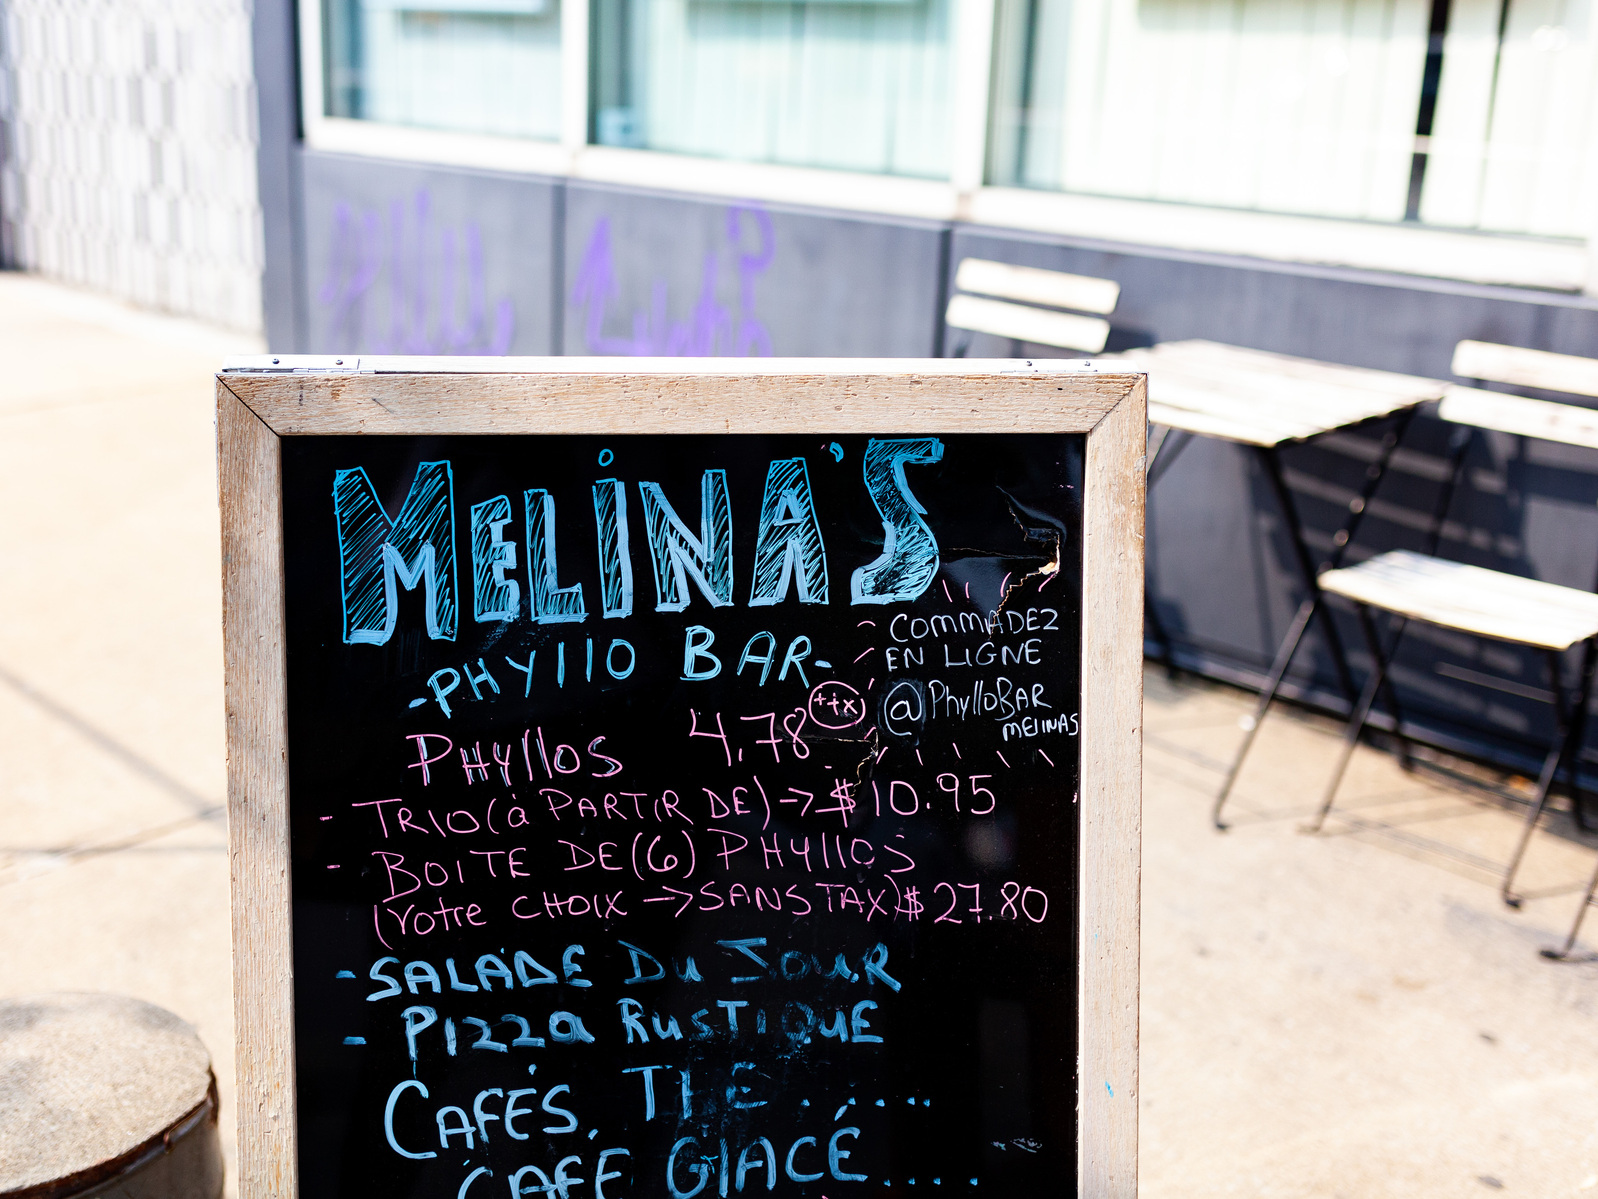 MELINA'S
-PHYllO BAR-
COMMADEZ
EN LIGNE
@PhylloBAR
MELINAS
PHYllOS 4.78 ++x
- TRIO (à PARTIR DE) -> $10.95
- BOITE DE (6) PHYllOS
(votre CHOIX -> SANS TAX) $27.80
- SALADE DU JOUR
- PIZZa RUSTIQUE
CAFÉS, THE......
CAFE GlACÉ.....